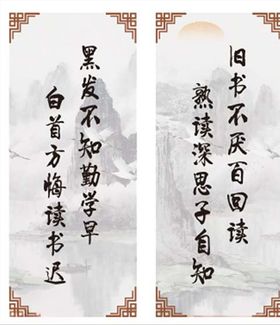 旧书不厌百回读
熟读深思子自知
黑发不知勤学早
白首方悔读书迟